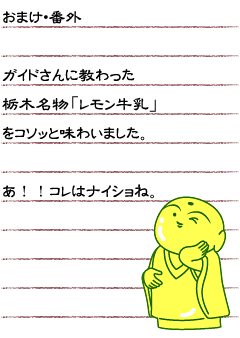 おまけ・番外
ガイドさんに教わった
栃木名物「レモン牛乳」
をコソッと味わいました。
あ！！コレはナイショね。